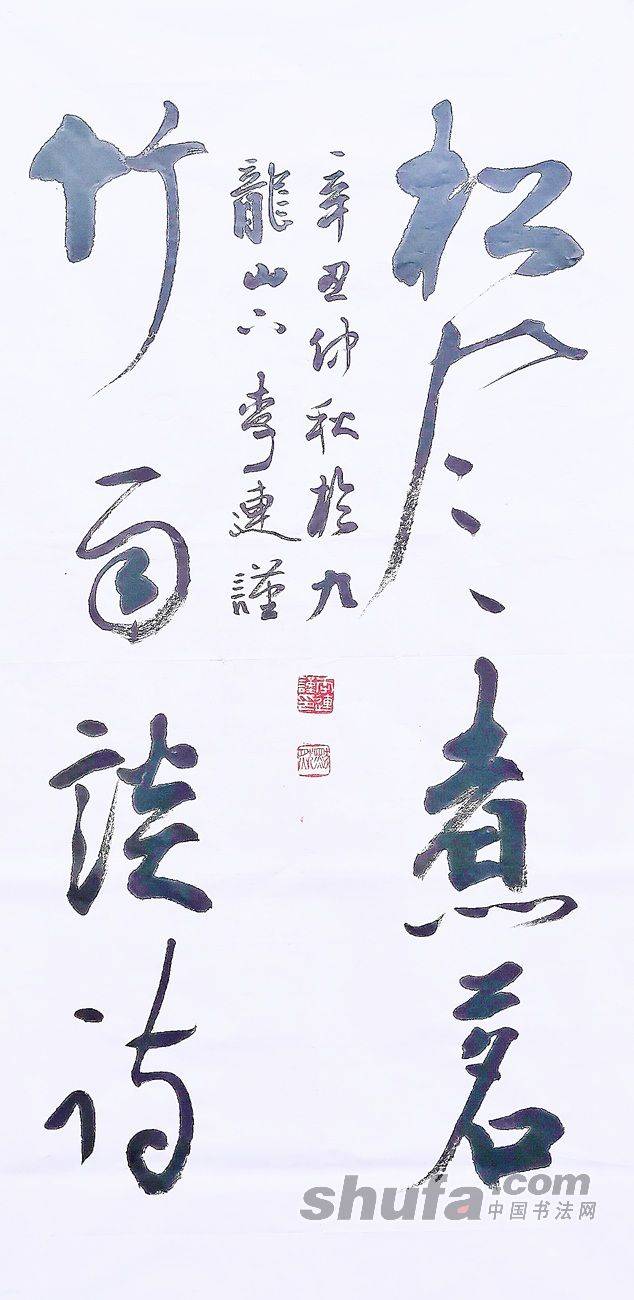 松風煮茗
辛丑仲秋於九
龍山下李連謹
竹雨談詩
shufa.com
中国书法网